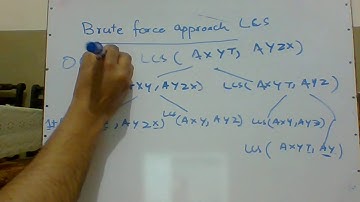 Brute force approach LCS
O LCS ( AXYT, AYZX)
XY, AYZX) LCS ( AXYT, AYZ)
1+ , AYZX) LCS (AXY, AYZ) LCS (AXY, AYZ)
LCS ( AXYT, AY)